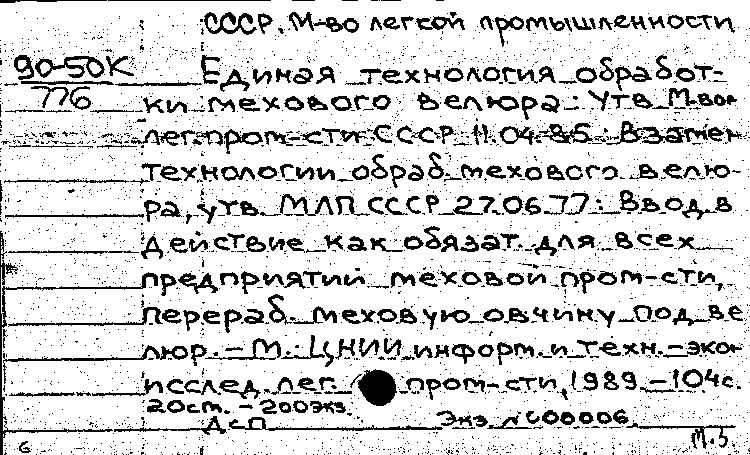 СССР. М-во легкой промышленности
90-50К
776
Единая технология обработ-
ки мехового велюра: Утв М-вом
лег.пром-сти СССР 11.04.85: Взамен
технологии обраб. мехового велю-
ра, утв. МЛП СССР 27.06.77: Ввод в
действие как обязат. для всех
предприятий меховой пром-сти,
перераб. меховую овчину под ве
люр. – М.: ЦНИИ информ. и техн.-экон
исслед. лег. пром-сти, 1989. – 104 с.
20см. – 200экз.
ДСП Экз. №000006.
6 М.З.